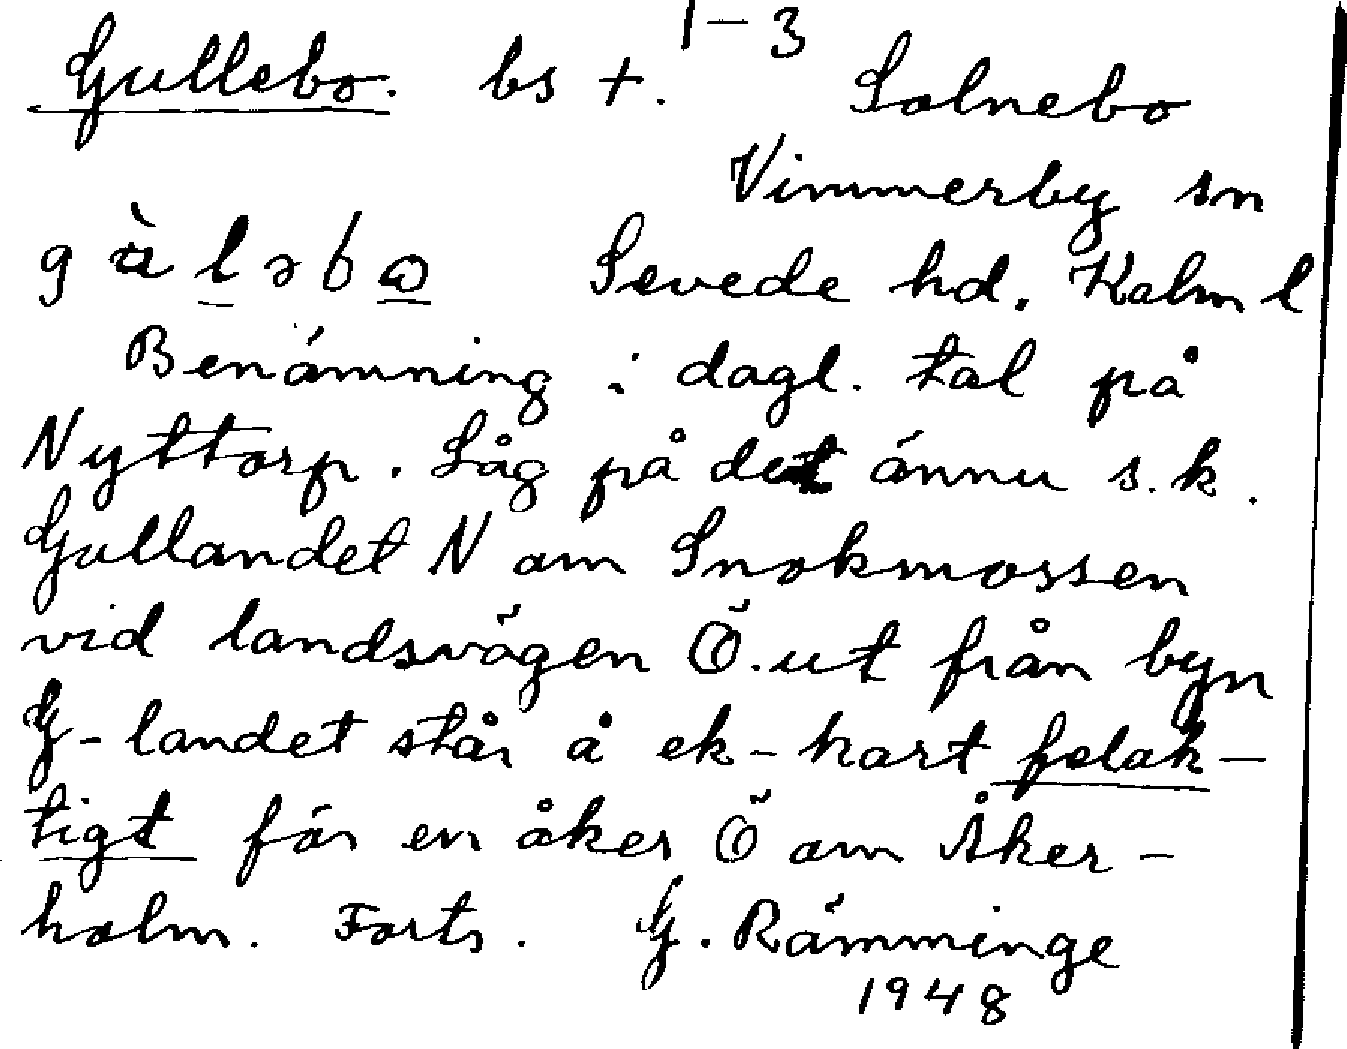 1-3
Gullebo. bs +. Solnebo
Vimmerby sn
Sevede hd. Kalm l
Benämning i dagl. tal på
Nyttorp. Låg på det ännu s.k.
Gullandet N om Snokmossen
vid landsvägen Ö. ut från byn
G-landet står å ek-kart felak-
tigt för en åker Ö om Åker-
holm. Forts. G. Rämminge
1948